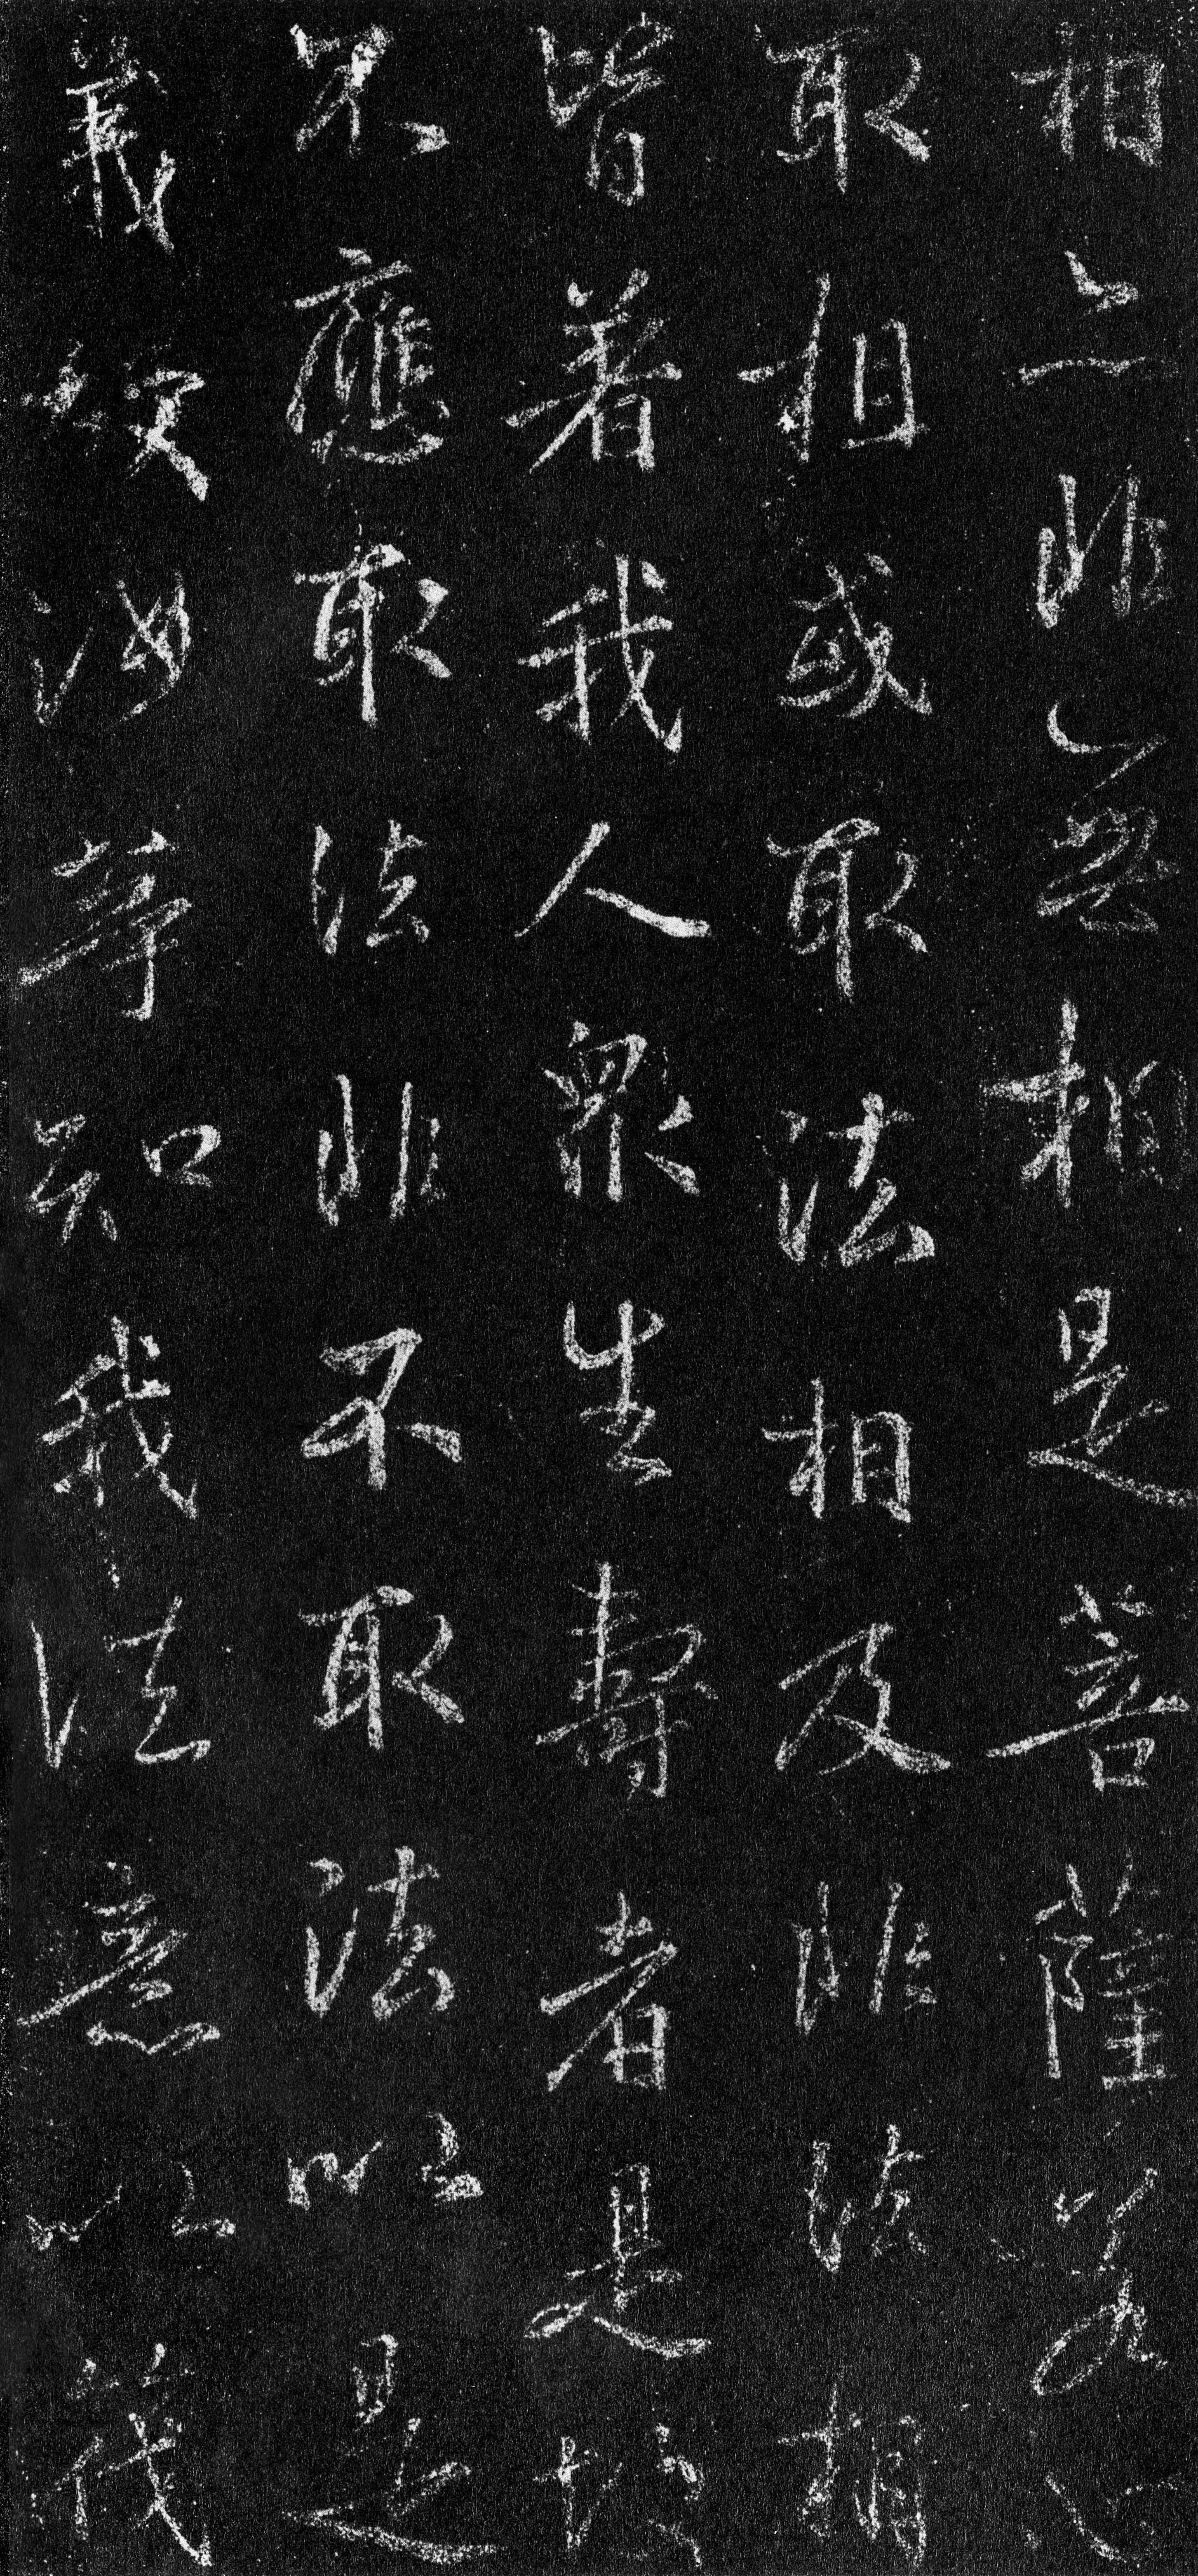 相亦非無相是菩薩若心
取相或取法相及非法相
皆着我人眾生壽者是故
不應取法非不取法以是
義故汝等知我法意以筏